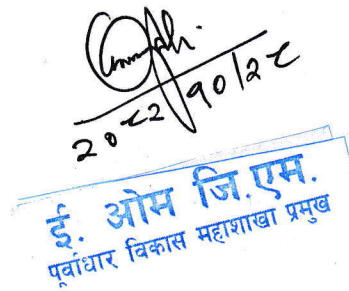 २०८२/१०/२८
ई. ओम जि.एम.
पूर्वाधार विकास महाशाखा प्रमुख